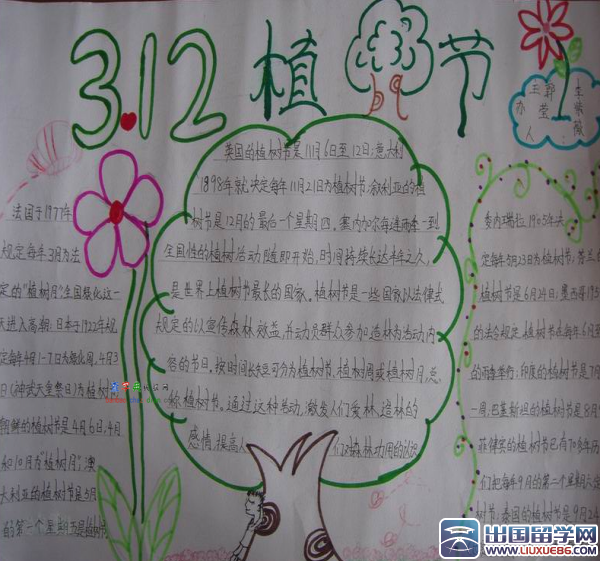 3.12 植树节
主办人:
郭莹
李紫薇
法国于1977年
规定每年3月为法
定的"植树月"全国绿化这一
天进入高潮;日本于1922年规
定每年4月1-7日为绿化周,4月3
日(神武天皇祭日)为植树节
朝鲜的植树节是4月6日,4月
和10月为"植树月",澳
大利亚的植树节是5月
的第一个星期五是植树节
英国的植树节是11月6日至12日;意大利
1898年就决定每年11月21日为植树节,叙利亚的植
树节是12月的最后一个星期四。塞内加尔每逢雨季一到
全国性的植树活动随即开始,时间持续长达半年之久,
是世界上植树节最长的国家。植树节是一些国家以法律式
规定的以宣传森林效益,并动员群众参加造林为活动内
容的节日。按时间长短可分为植树节,植树周或植树月,总
称植树节。通过这种活动,激发人们爱林、造林的
感情,提高人们对森林功用的认识
委内瑞拉1905年决
定每年5月23日为植树节;芬兰的
植树节是6月24日;墨西哥
的法令规定植树节在每年6月到
的雨季举行;印度的植树节是7月
一周,巴基斯坦的植树节是8月
菲律宾的植树节已有70多年历
们把每年9月的第二个星期六定
树节,泰国的植树节是9月24
出国留学网
www.liuxue86.com